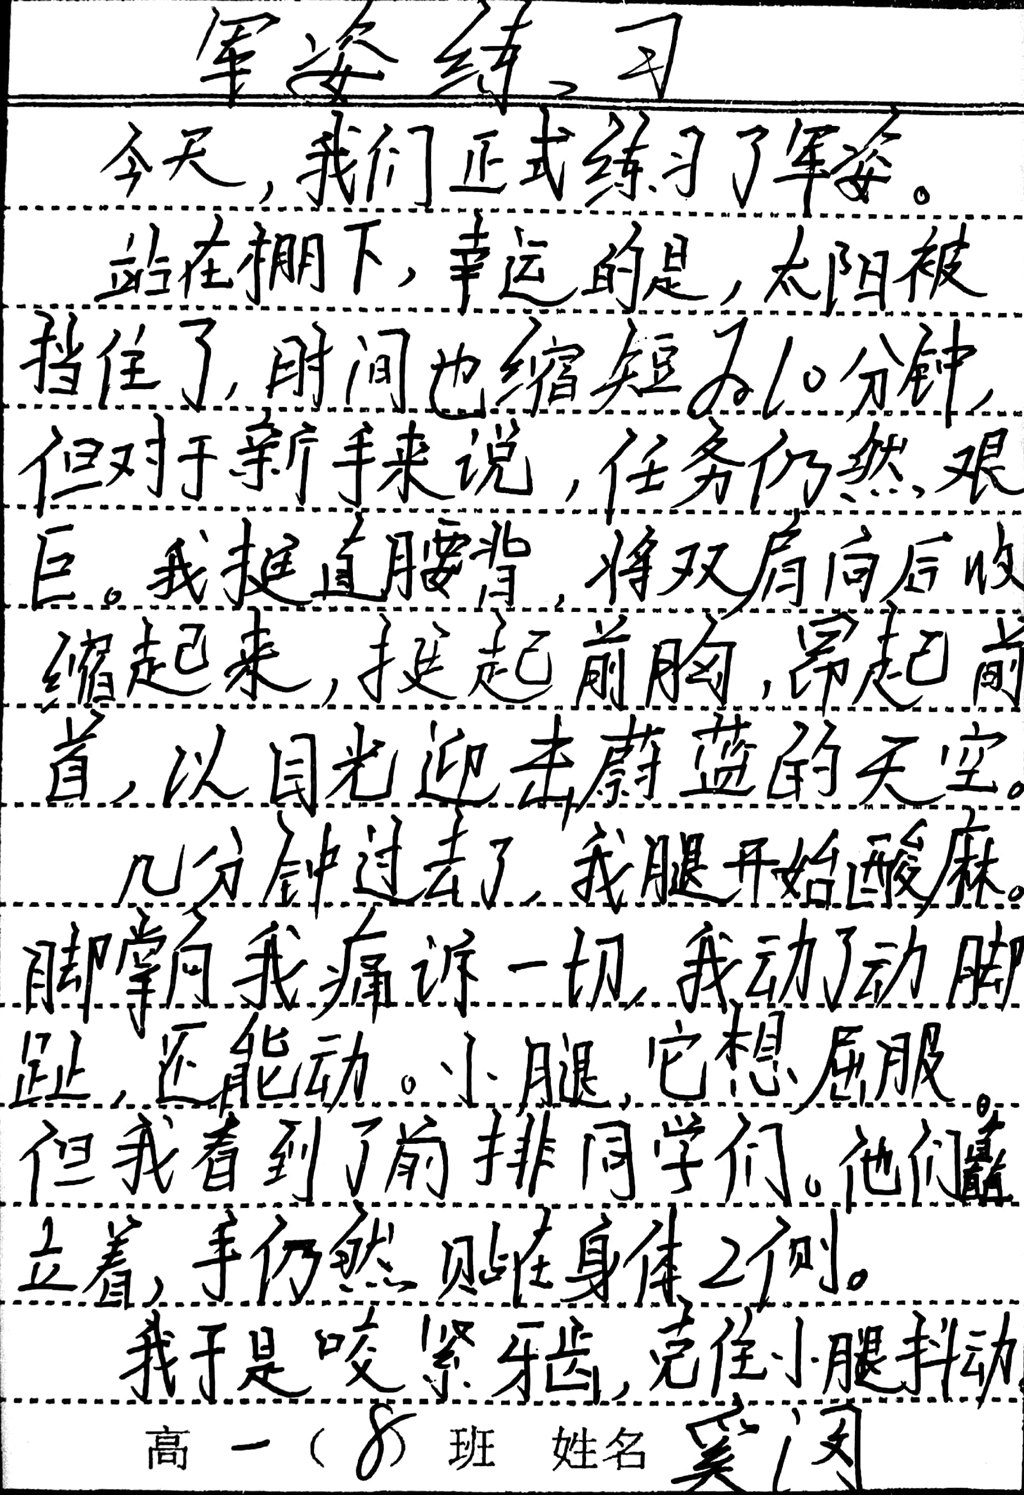 军姿练习
今天，我们正式练习了军姿。
站在棚下，幸运的是，太阳被
挡住了，时间也缩短为10分钟，
但对于新手来说，任务仍然艰
巨。我挺直腰背，将双肩向后收
缩起来，挺起前胸，昂起前
首，以目光迎击蔚蓝的天空。
几分钟过去了，我腿开始酸麻。
脚掌向我痛诉一切，我动了动脚
趾，还能动。小腿，它想屈服。
但我看到了前排同学们。他们矗
立着，手仍然贴在身体2侧。
我于是咬紧牙齿，克住小腿抖动，
高一（8）班 姓名 奚